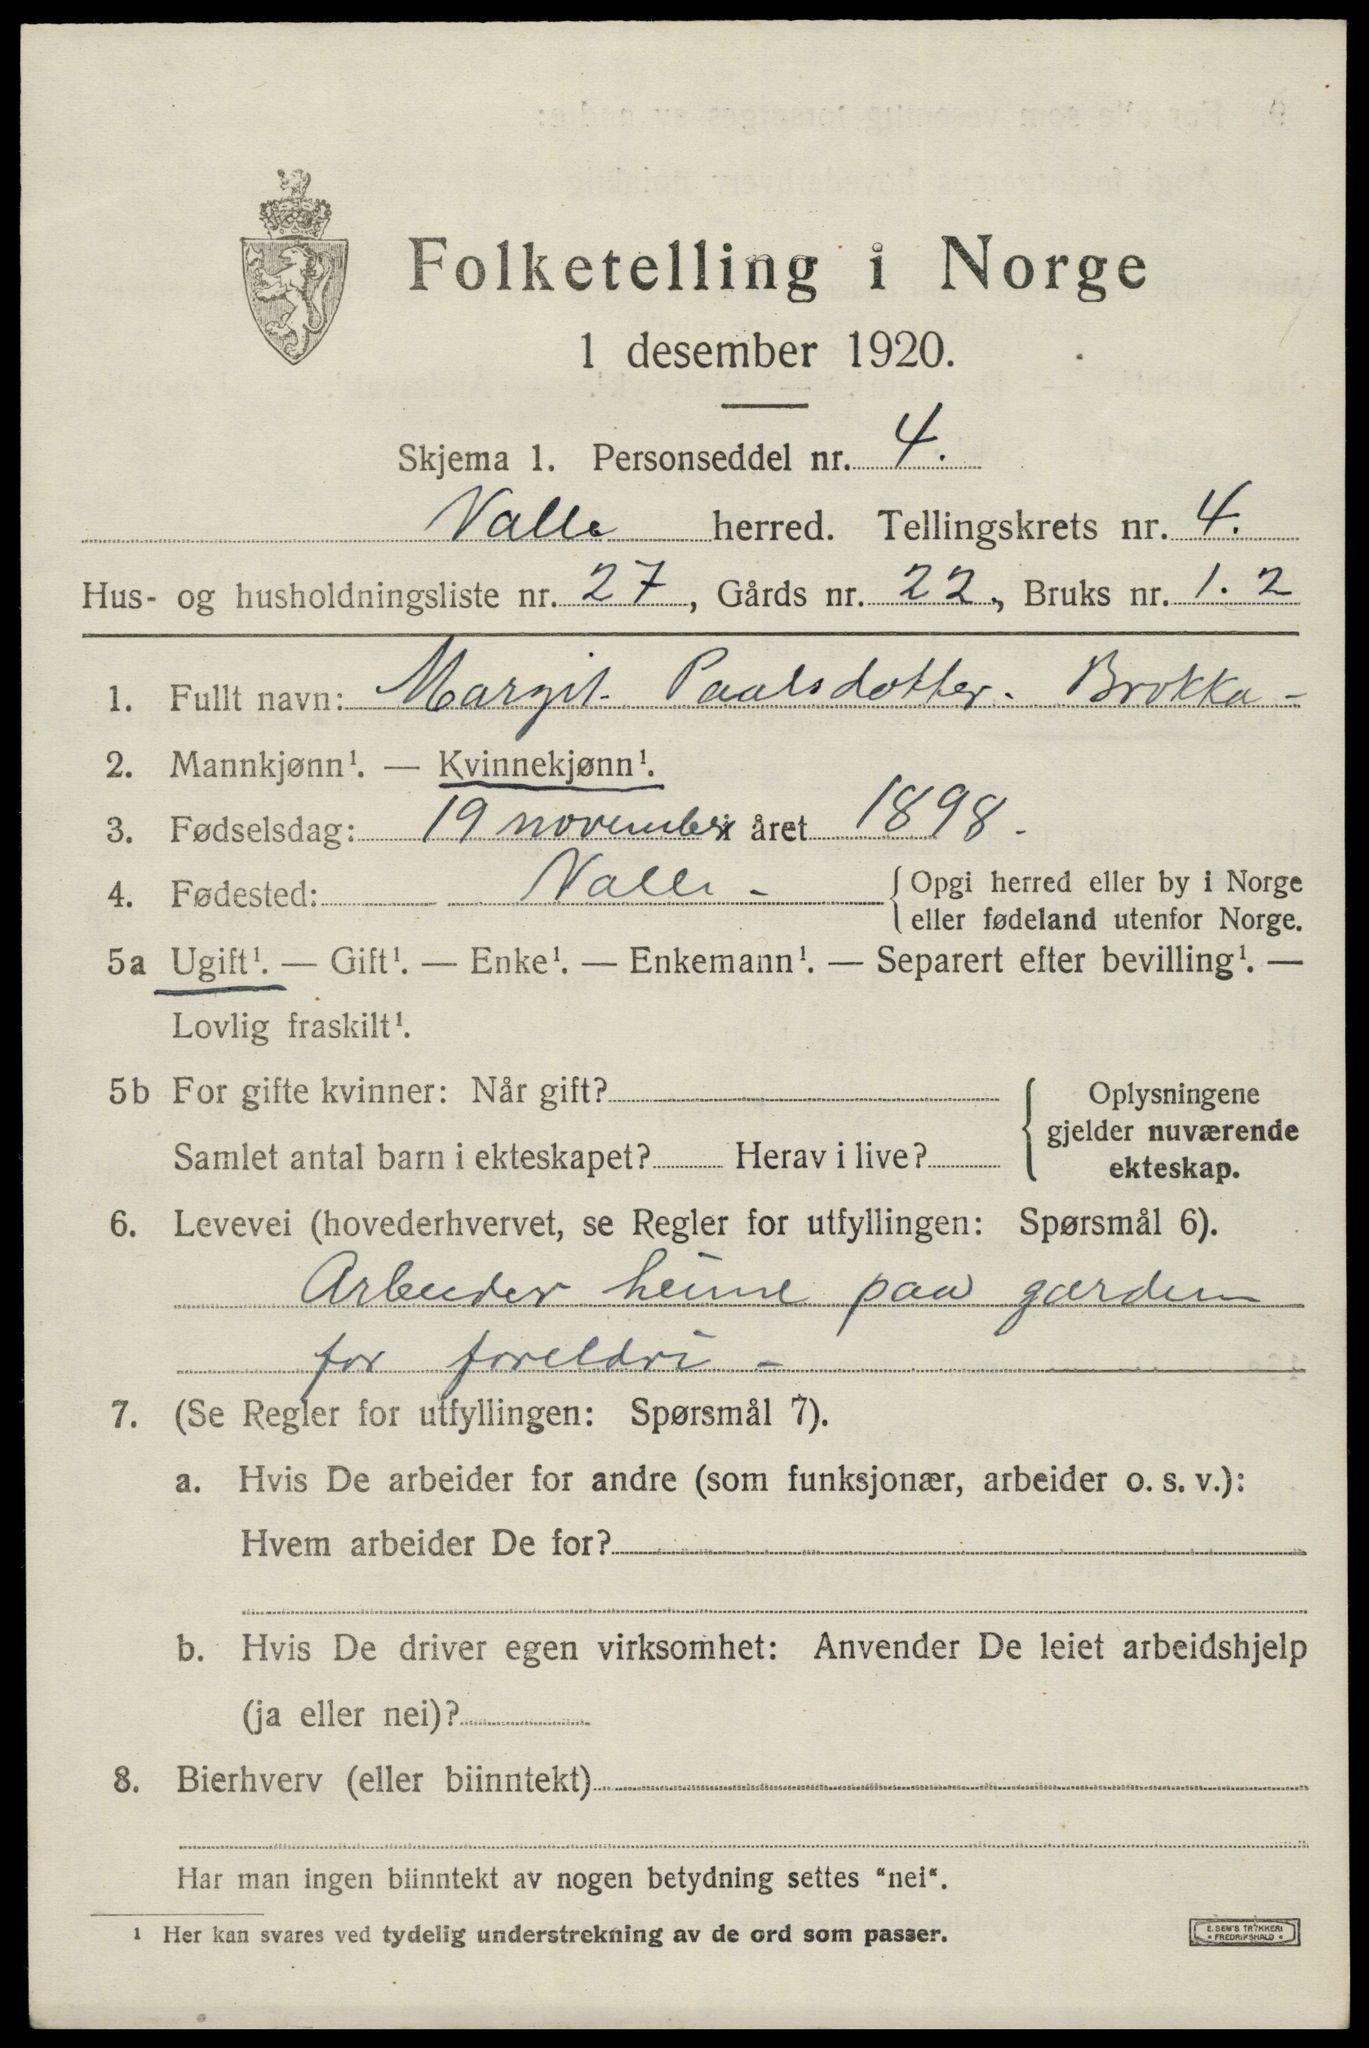 Folketelling i Norge
1 desember 1920.
Skjema 1. Personseddel nr. 4.
Valle herred. Tellingskrets nr. 4.
Hus- og husholdningsliste nr. 27, Gårds nr. 22, Bruks nr. 1. 2
1. Fullt navn: Margit Paalsdotter. Brokka -
2. Mannkjønn¹. — Kvinnekjønn¹.
3. Fødselsdag: 19 november i året 1898.
4. Fødested: Valle - Opgi herred eller by i Norge
eller fødeland utenfor Norge.
5a Ugift¹. — Gift¹. — Enke¹. — Enkemann¹. — Separert efter bevilling¹. —
Lovlig fraskilt¹.
5b For gifte kvinner: Når gift?
Samlet antal barn i ekteskapet? Herav i live?
Oplysningene
gjelder nuværende
ekteskap.
6. Levevei (hovederhvervet, se Regler for utfyllingen: Spørsmål 6).
Arbeider heime paa garden
for foreldri -
7. (Se Regler for utfyllingen: Spørsmål 7).
a. Hvis De arbeider for andre (som funksjonær, arbeider o. s. v.):
Hvem arbeider De for?
b. Hvis De driver egen virksomhet: Anvender De leiet arbeidshjelp
(ja eller nei)?
8. Bierhverv (eller biinntekt)
Har man ingen biinntekt av nogen betydning settes "nei".
¹ Her kan svares ved tydelig understrekning av de ord som passer.
E. SEM'S TRYKKERI
• FREDRIKSHALD •